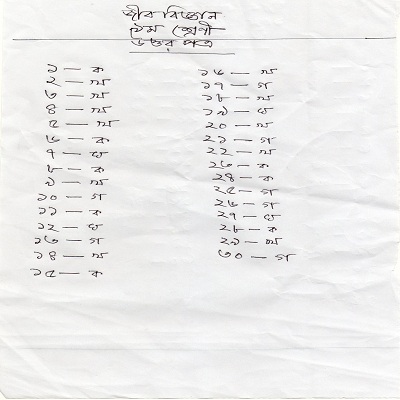 জীব বিজ্ঞান
৯ম শ্রেণী
উত্তর পত্র
১ — ক
২ — খ
৩ — খ
৪ — খ
৫ — খ
৬ — ক
৭ — ঘ
৮ — ক
৯ — খ
১০ — গ
১১ — ক
১২ — ঘ
১৩ — গ
১৪ — খ
১৫ — ক
১৬ — খ
১৭ — গ
১৮ — খ
১৯ — ঘ
২০ — খ
২১ — গ
২২ — খ
২৩ — ক
২৪ — ক
২৫ — গ
২৬ — গ
২৭ — ঘ
২৮ — ক
২৯ — খ
৩০ — গ